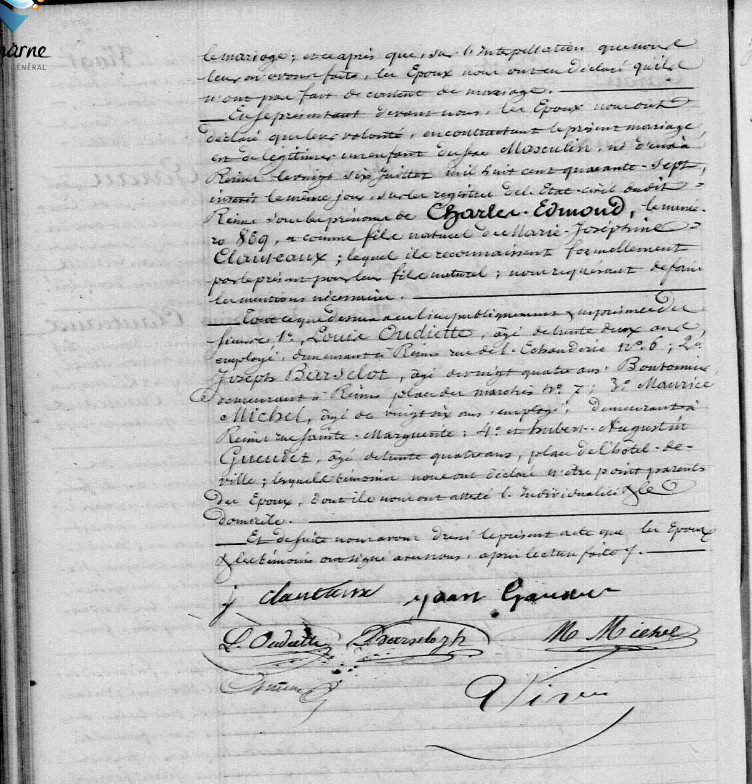 arne
GÉNÉRAL
le mariage ; et ce après que, sur l'interpellation que nous
leur en avons faite, les Epoux nous ont eu déclaré qu'ils
n'ont pas fait de contrat de mariage.
En se présentant devant nous, les Epoux nous ont
déclaré que leur volonté, en contractant le présent mariage,
est de légitimer un enfant du sexe Masculin né d'eux à
Reims le vingt six Juillet mil huit cent quarante-sept,
inscrit le même jour, sur les registres de l'Etat-civil dudit
Reims sous les prénoms de Charles-Edmond, le numé-
ro 869, et comme fils naturel de Marie-Joséphine
Clauteaux ; lequel ils reconnaissent formellement
par le présent pour leur fils naturel ; nous requérant de faire
les mentions nécessaires.
Tout ce que dessus a eu lieu publiquement en présence des
sieurs 1º Louis Oudiette, agé de trente deux ans,
employé, demeurant à Reims rue de l'Echauderie nº 6 ; 2º
Joseph Barselot, agé de vingt quatre ans,
demeurant à Reims place des marchés nº 7 ; 3º Maurice
Michel, agé de vingt six ans, employé, demeurant à
Reims rue Sainte-Marguerite ; 4º et hubert-Augustin
Gueudet, agé de trente quatre ans, place de l'hôtel-de-
ville ; lesquels témoins nous ont déclaré n'être point parents
des Epoux, dont ils nous ont attesté l'individualité & le
domicile.
Et de suite nous avons dressé le présent acte que les Epoux
& les témoins ont signé avec nous, après lecture faite.
j clauteaux
L. Oudiette Barseloth M Michel